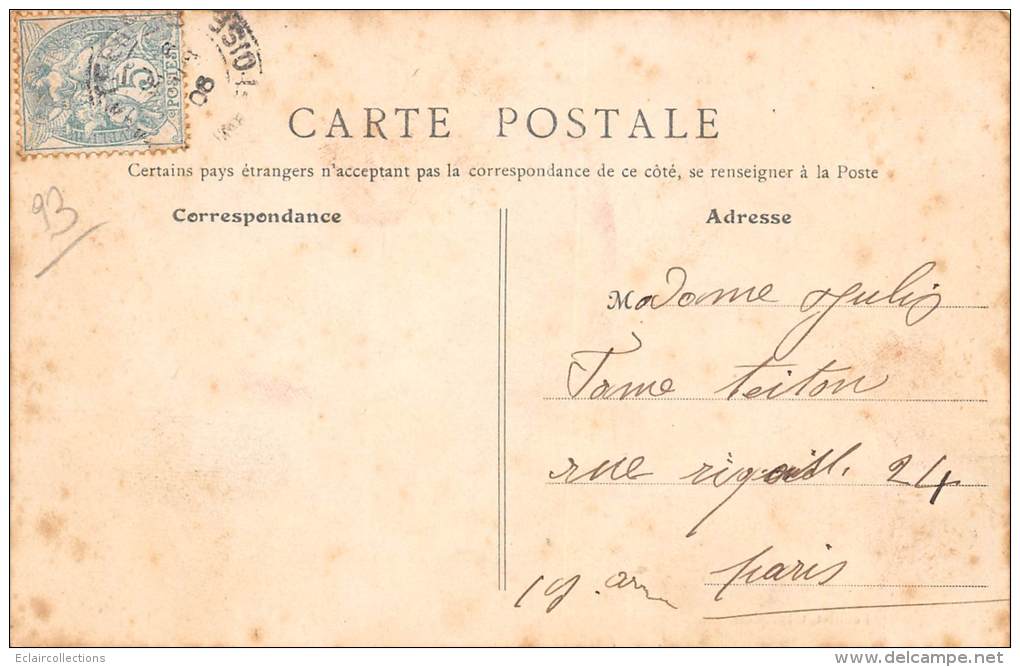 5
POSTES
OISE
08
CARTE POSTALE
Certains pays étrangers n'acceptant pas la correspondance de ce côté, se renseigner à la Poste
93
Correspondance
Adresse
Madame Julie
Fame teiton
rue 24
19. arr
Paris
Eclaircollections
delcampe.net